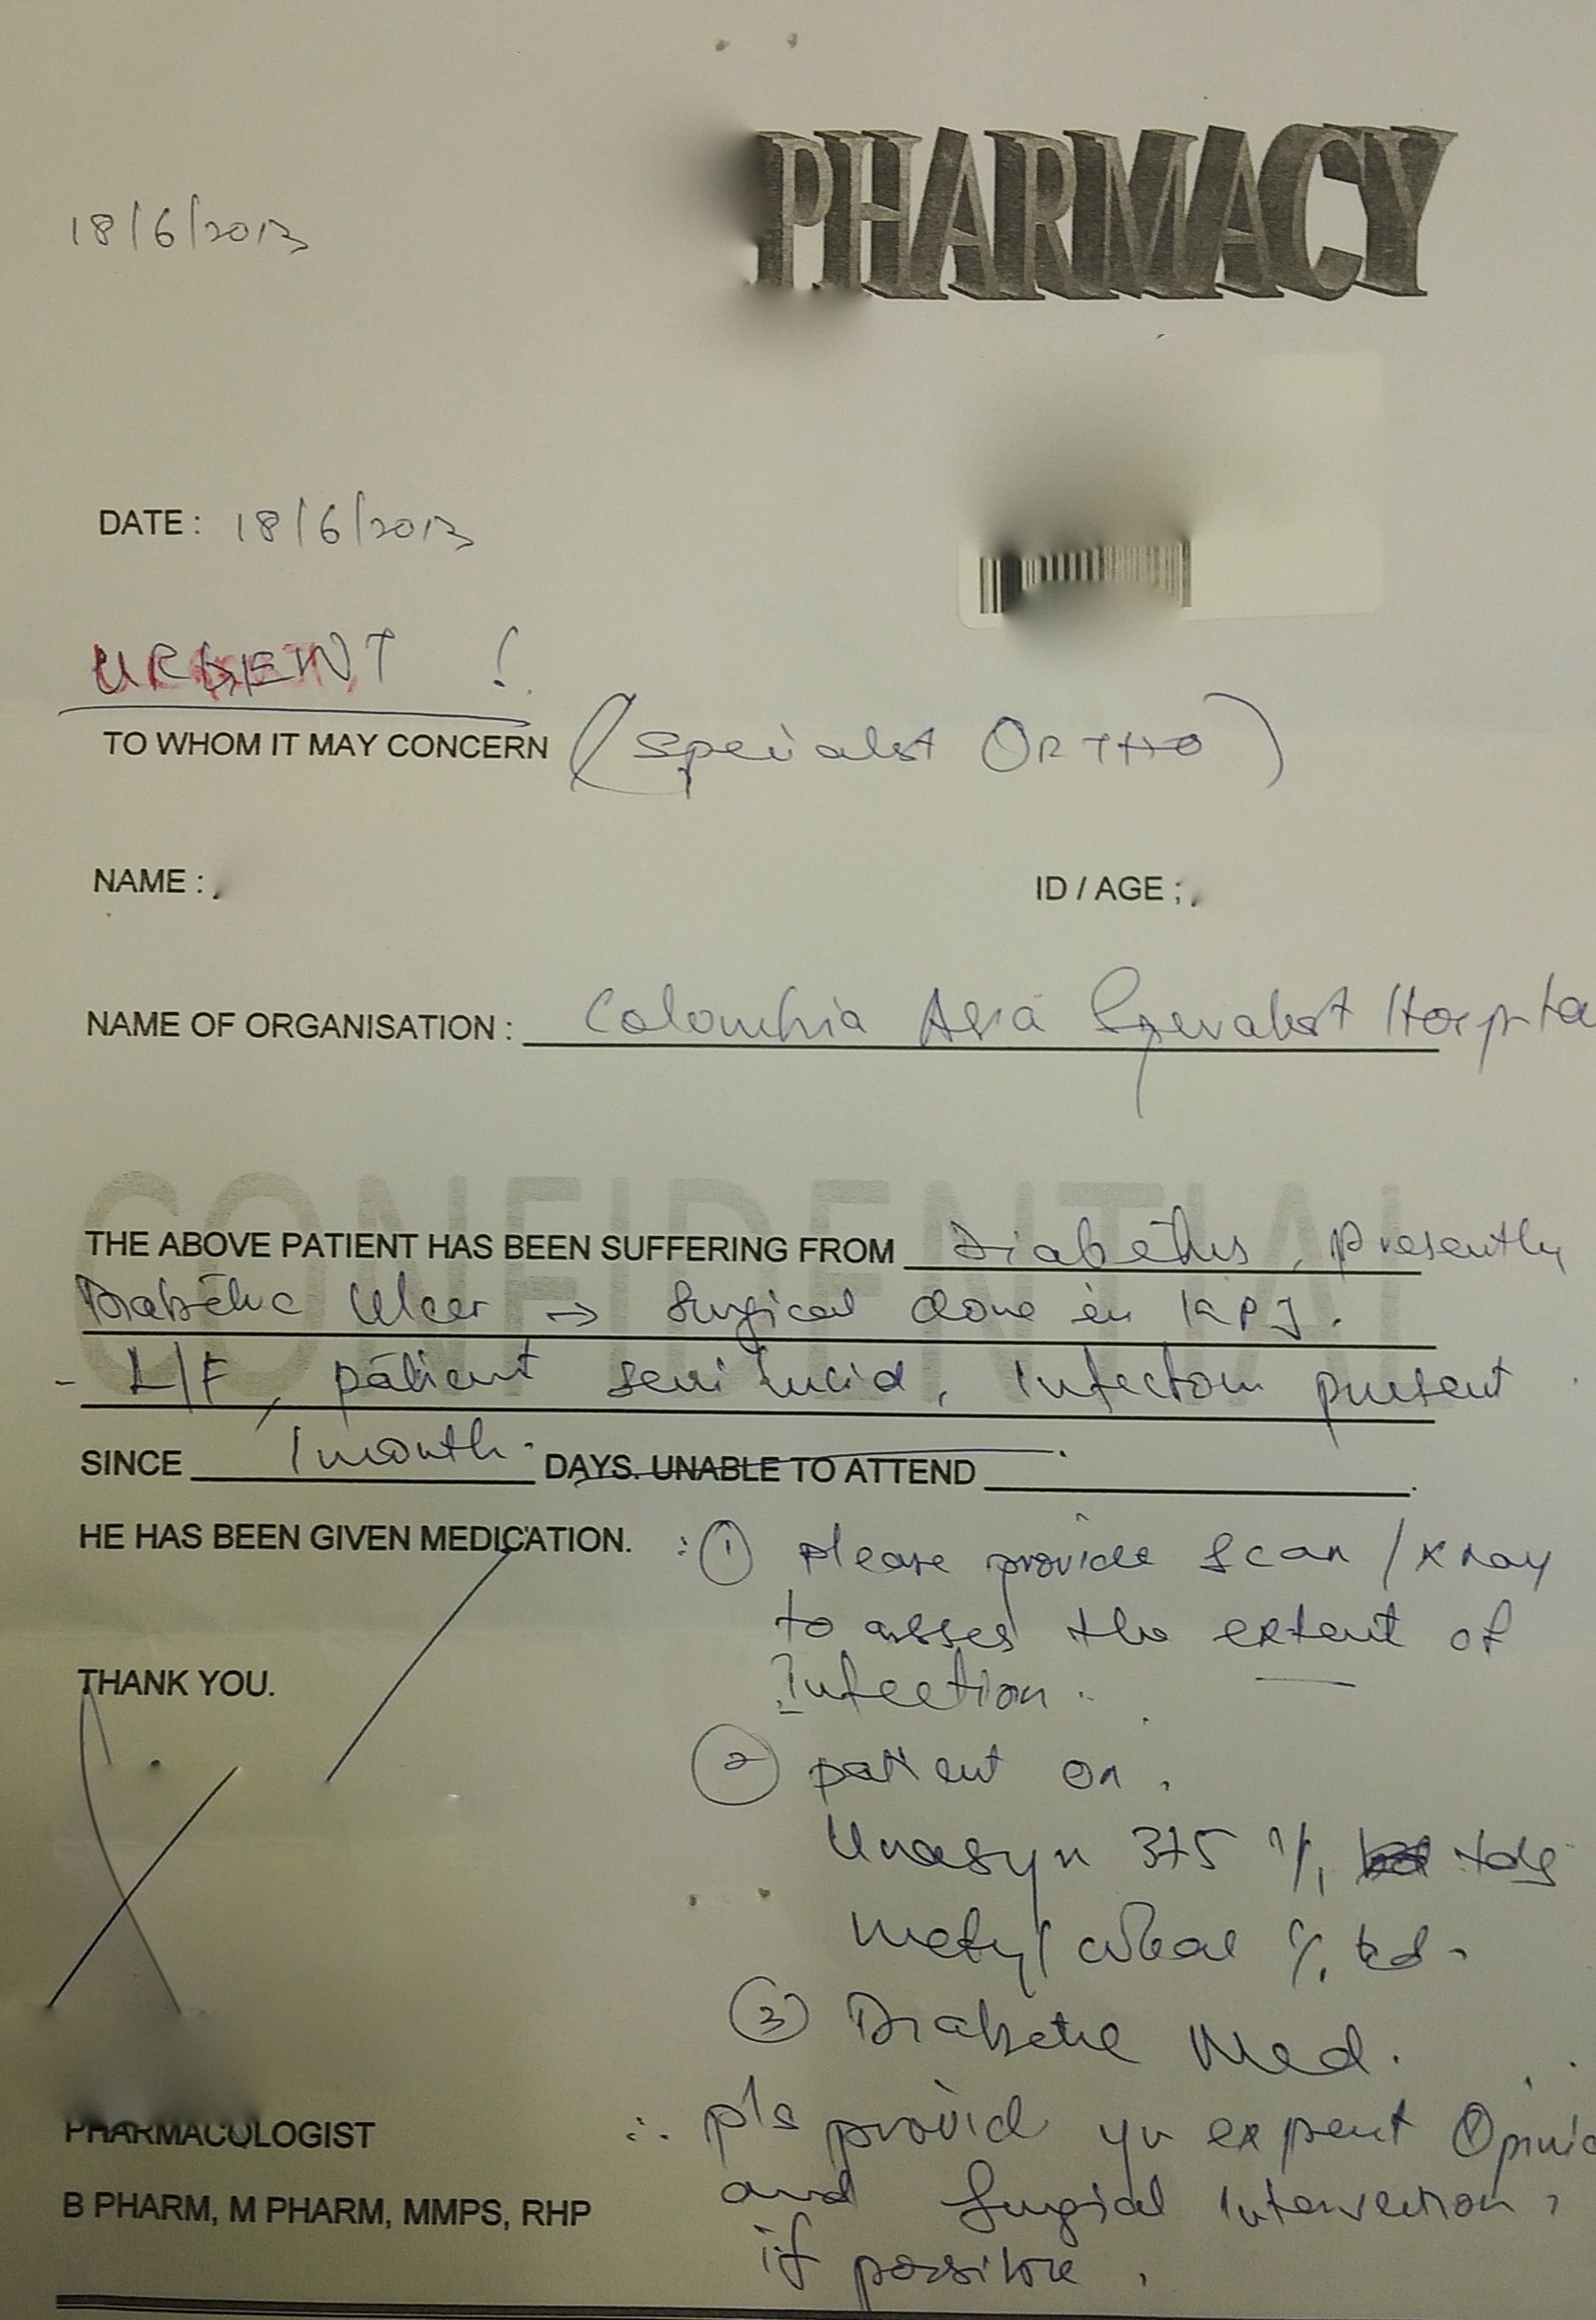 PHARMACY
18/6/2013
DATE : 18/6/2013
URGENT !
TO WHOM IT MAY CONCERN (Specialist ORTHO)
NAME :
ID / AGE ;
NAME OF ORGANISATION : Columbia Asia Specialist Hospita
CONFIDENTIAL
THE ABOVE PATIENT HAS BEEN SUFFERING FROM Diabetes, presently
Diabetic Ulcer → Surgical done in KPJ.
- L/F, patient semi lucid, Infection present
SINCE 1 month. DAYS. UNABLE TO ATTEND .
HE HAS BEEN GIVEN MEDICATION. : ① please provide scan / xray
to asses the extent of
Infection.
THANK YOU.
② patient on.
Unasyn 375 tds
③ Diabetic Med.
PHARMACOLOGIST
∴ pls provid yr expert Opinio
B PHARM, M PHARM, MMPS, RHP
and Surgical Intervention,
if possible.